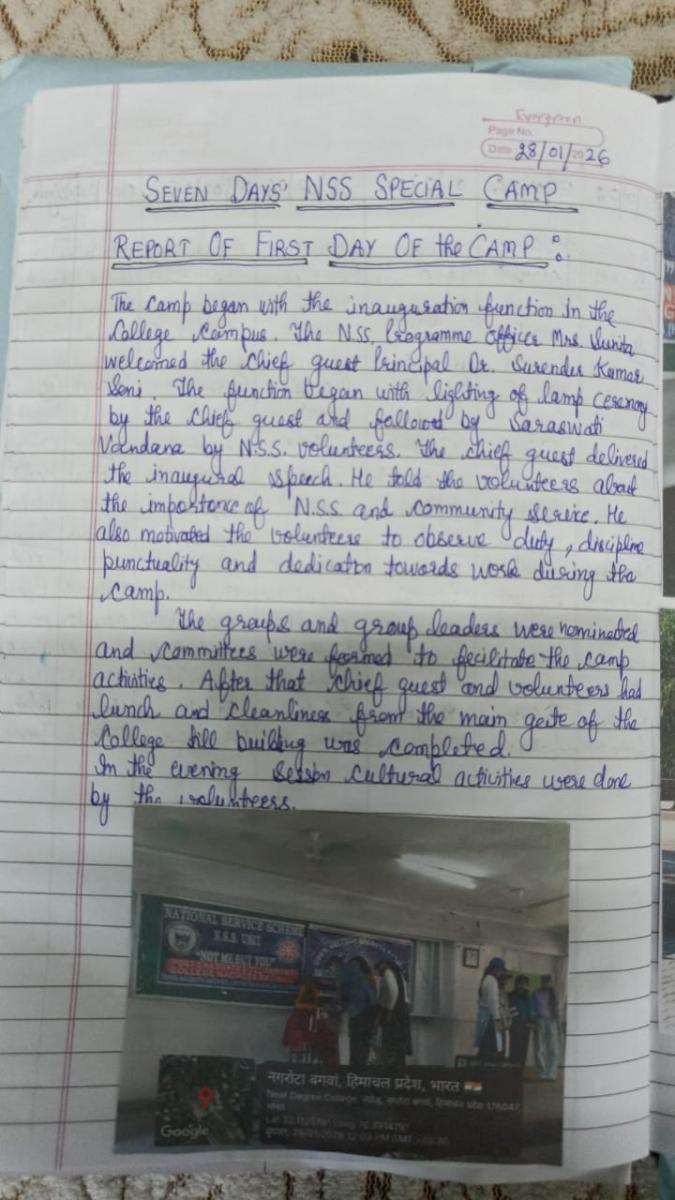 Evergreen
Page No.
Date 28/01/2026
SEVEN DAYS' NSS SPECIAL CAMP
REPORT OF FIRST DAY OF the CAMP :
The camp began with the inauguration function in the
College Campus. The N.S.S. Programme Officer Mrs. Sunita
welcomed the chief guest Principal Dr. Surender Kumar
Soni. The function began with lighting of lamp ceremony
by the chief guest and followed by Saraswati
Vandana by N.S.S. volunteers. The chief guest delivered
the inaugural speech. He told the volunteers about
the importance of N.S.S. and community service. He
also motivated the volunteers to observe duty, discipline
punctuality and dedication towards work during the
camp.
The groups and group leaders were nominated
and committees were formed to fecilitate the camp
activities. After that chief guest and volunteers had
lunch and cleanliness from the main gate of the
College till building was completed.
In the evening session cultural activities were done
by the volunteers.
NATIONAL SERVICE SCHEME
N.S.S. UNIT
"NOT ME BUT YOU"
नगरोटा बगवां, हिमाचल प्रदेश, भारत
Near Degree College, हिमाचल प्रदेश 176047,
भारत
Google